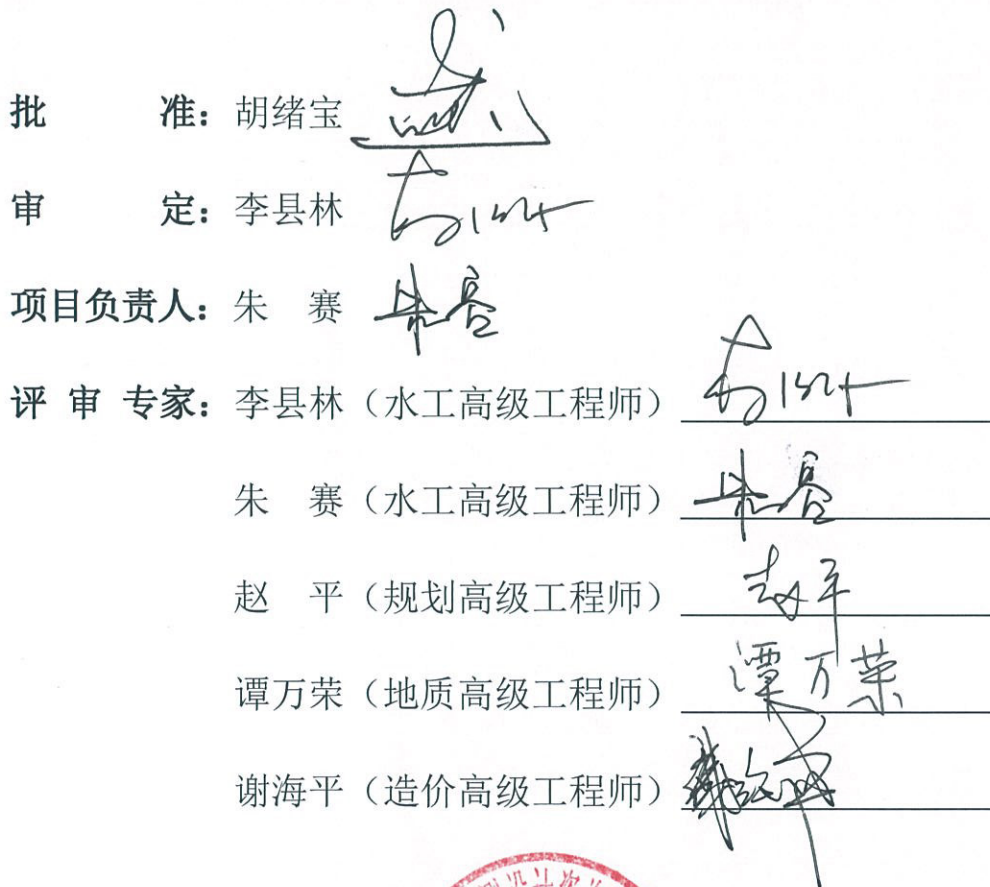 批 准：胡绪宝
审 定：李县林
项目负责人：朱 赛 朱赛
评 审 专家：李县林（水工高级工程师）
朱 赛（水工高级工程师） 朱赛
赵 平（规划高级工程师） 赵平
谭万荣（地质高级工程师） 谭万荣
谢海平（造价高级工程师）